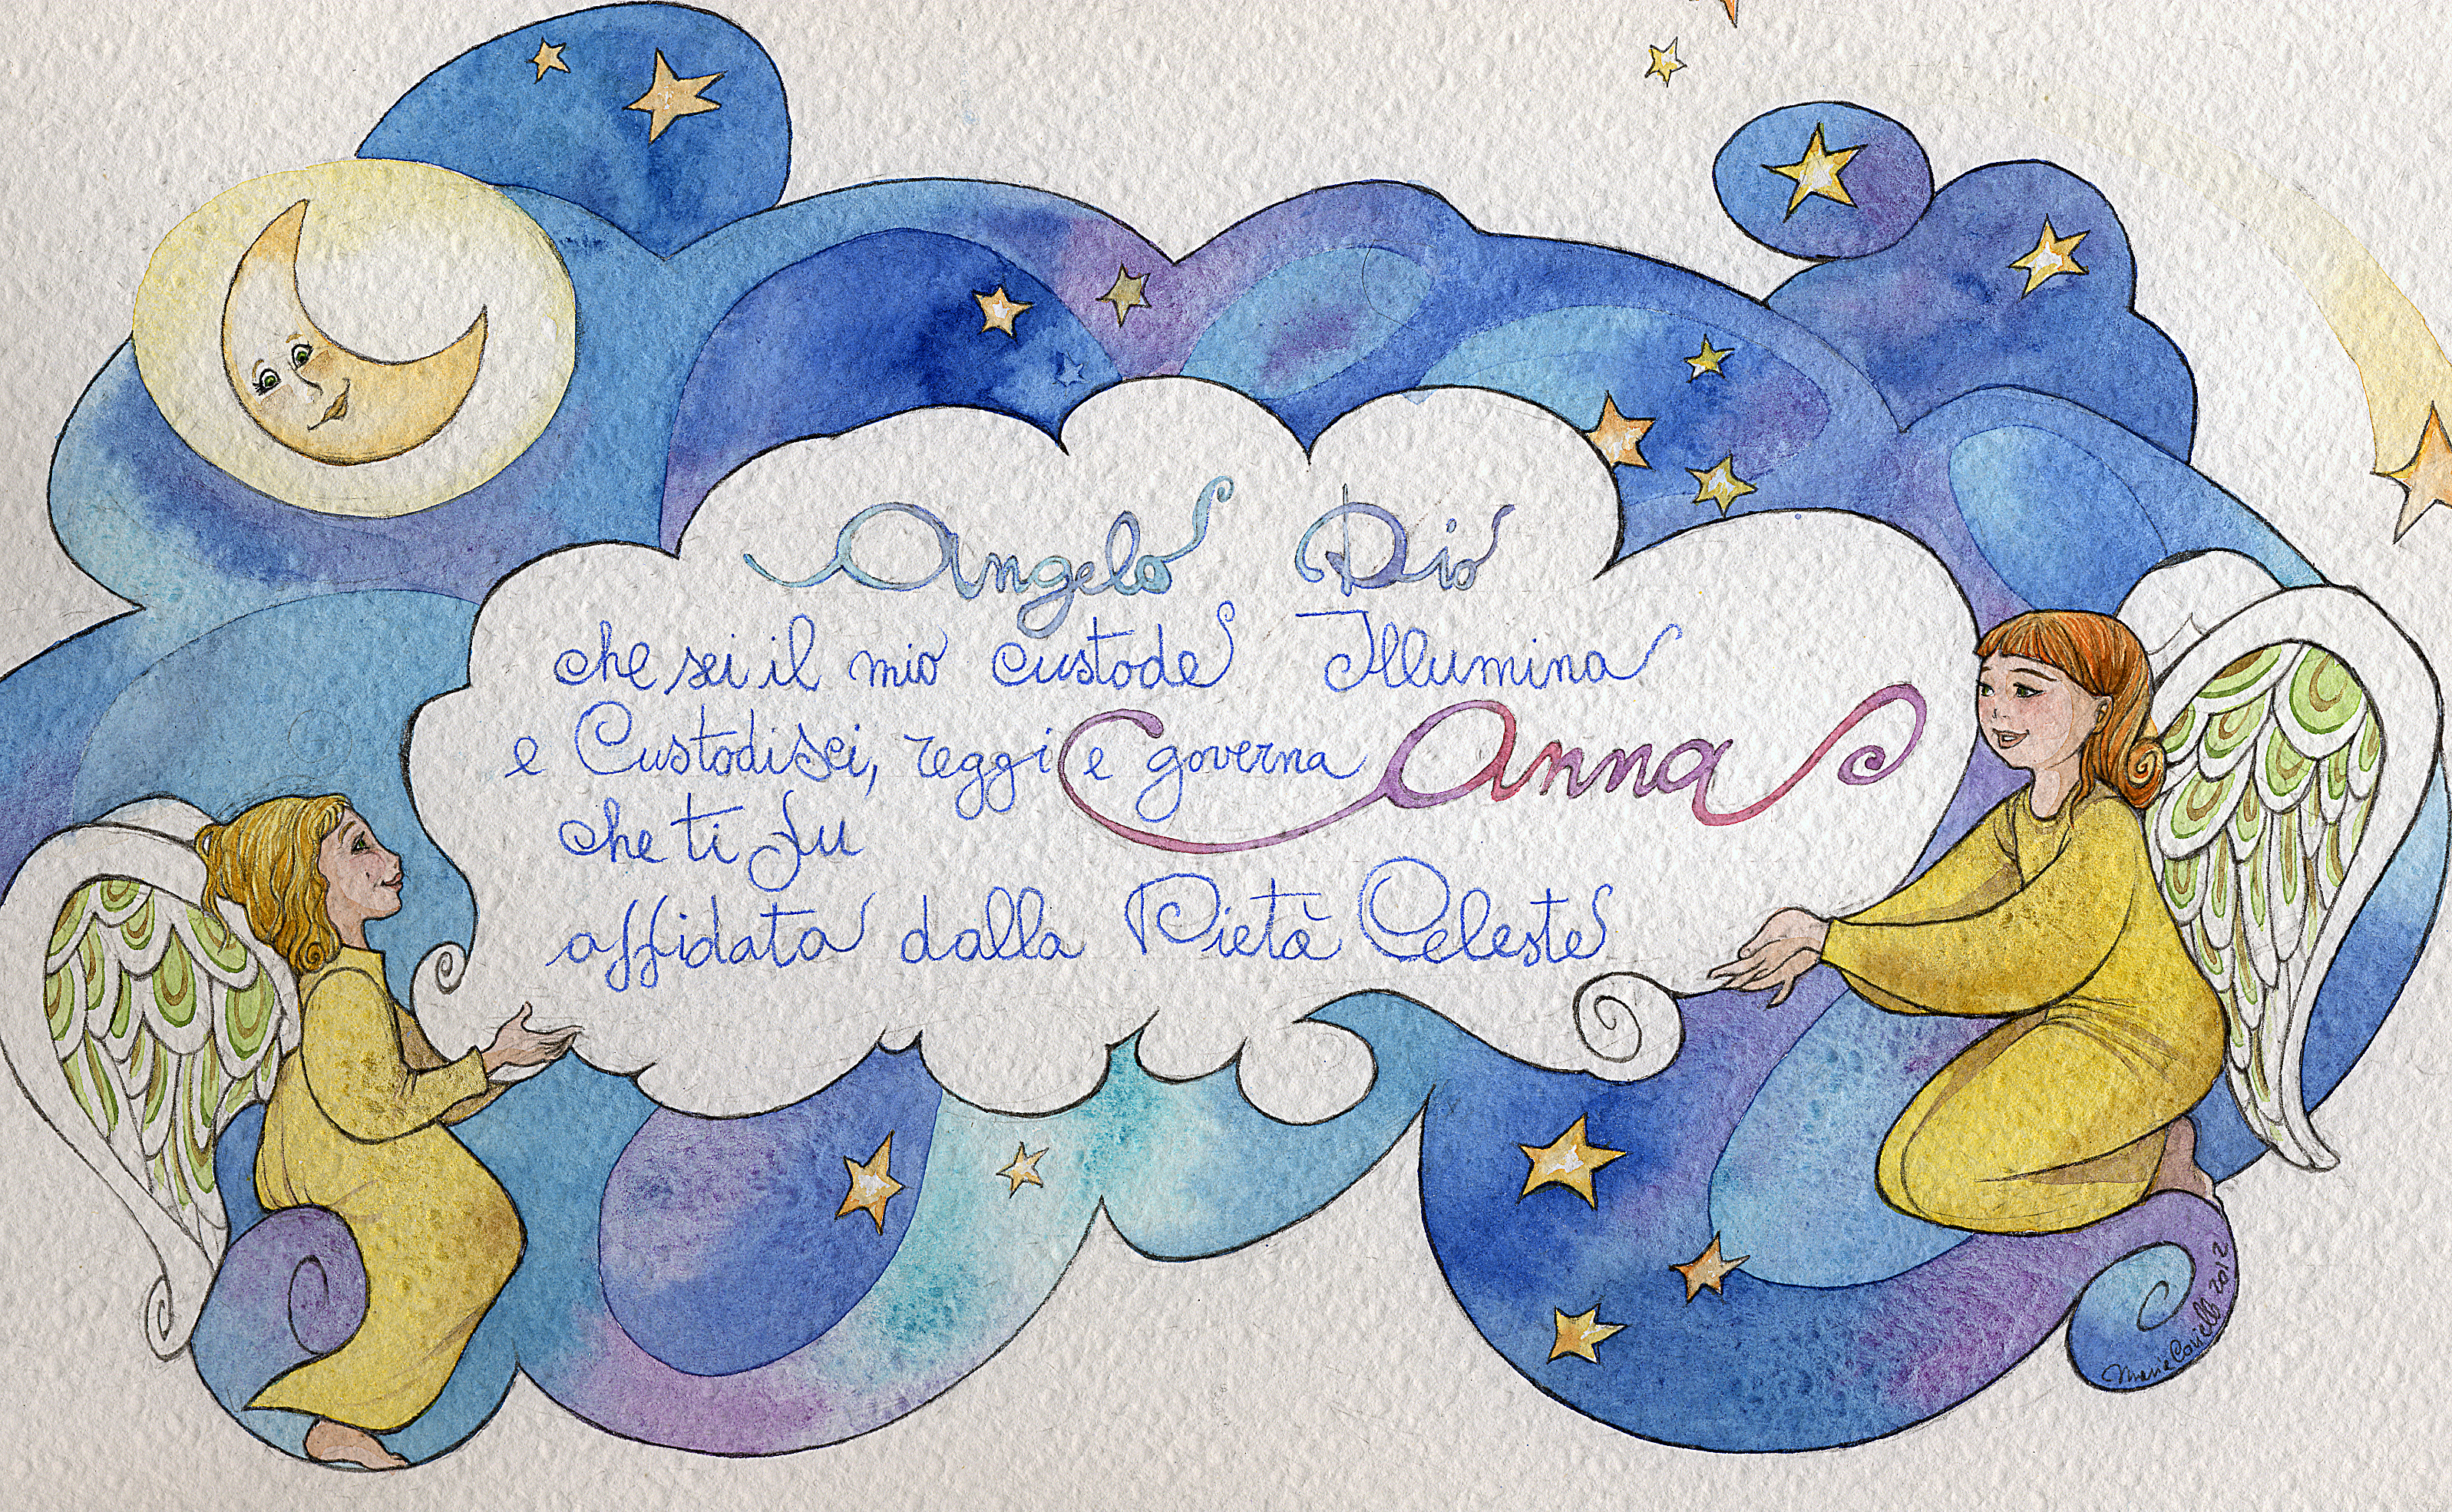 Angelo Dio
che sei il mio custode Illumina
e Custodisci, reggi e governa Anna
che ti fu
affidata dalla Pietà Celeste
2012